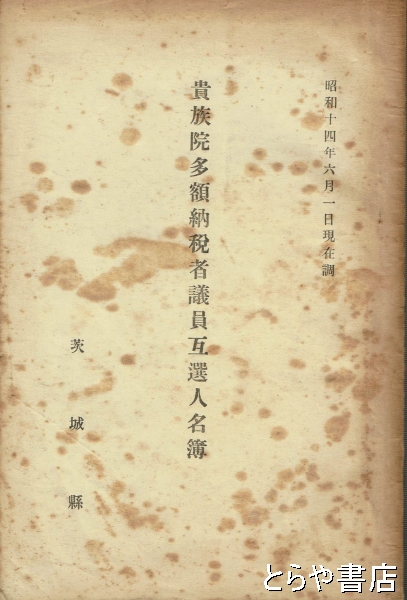 昭和十四年六月一日現在調
貴族院多額納稅者議員互選人名簿
茨城縣
とらや書店